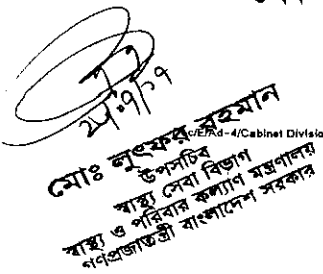 ২৫/৭/১৭
c/E/Ad-4/Cabinet Divisio
মোঃ লুৎফর রহমান
উপসচিব
স্বাস্থ্য সেবা বিভাগ
স্বাস্থ্য ও পরিবার কল্যাণ মন্ত্রণালয়
গণপ্রজাতন্ত্রী বাংলাদেশ সরকার